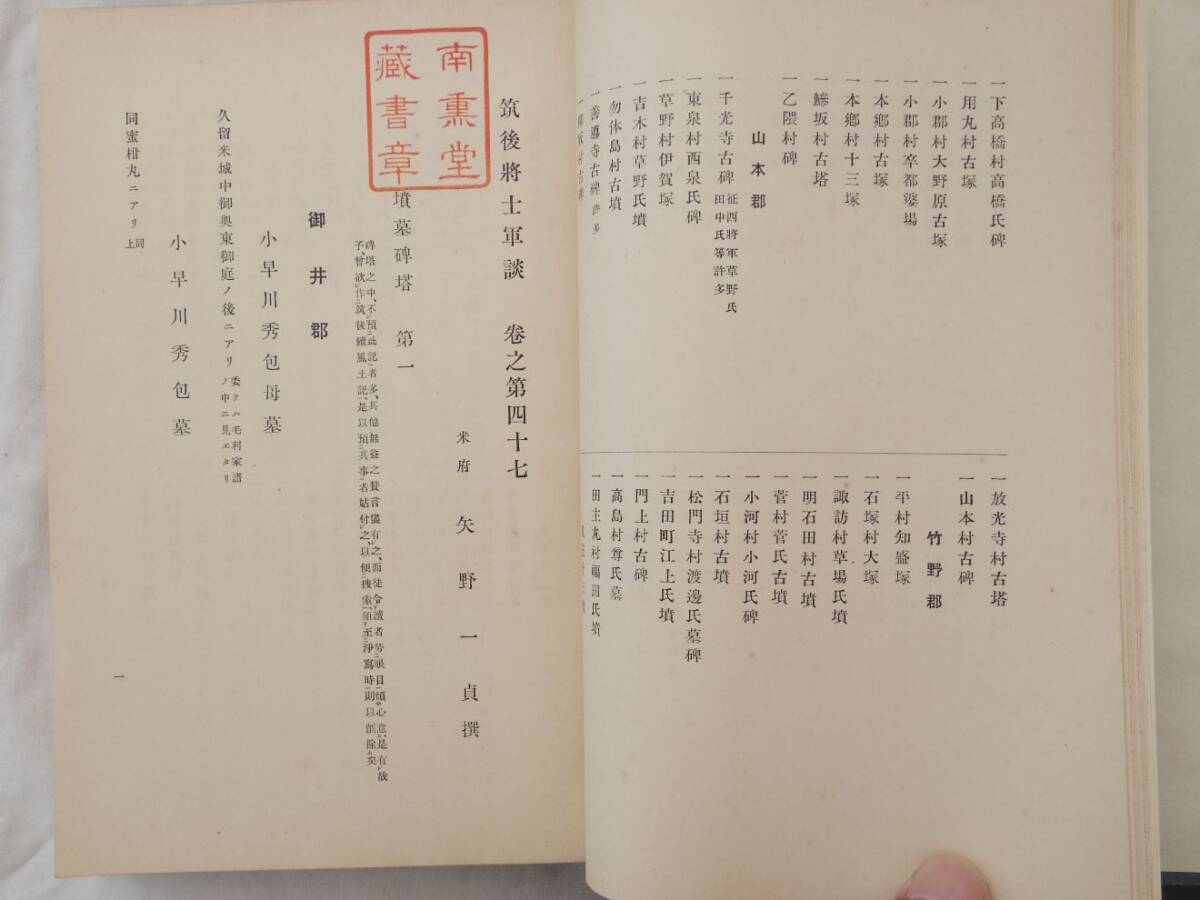 一下高橋村高橋氏碑
一用丸村古塚
一小郡村大野原古塚
一小郡村卒都婆場
一本鄕村古塚
一本鄕村十三塚
一鰺坂村古塔
一乙隈村碑
山本郡
一千光寺古碑 征西將軍草野氏田中氏等許多
一東泉村西泉氏碑
一草野村伊賀塚
一吉木村草野氏墳
一勿体島村古墳
一善導寺古碑許多
一放光寺村古塔
一山本村古碑
竹野郡
一平村知盛塚
一石塚村大塚
一諏訪村草場氏墳
一明石田村古墳
一菅村菅氏古墳
一小河村小河氏碑
一石垣村古墳
一松門寺村渡邊氏墓碑
一吉田町江上氏墳
一門上村古碑
一高島村尊氏墓
一田主丸村福田氏墳
南熏堂
藏書章
筑後將士軍談 卷之第四十七
米府 矢野一貞撰
墳墓碑塔 第一
碑塔之中、不預此記者多、其他無益之贅言儘有之、而徒令讀者勞眼目煩心意、是有故
予、曾欲作筑後續風土記、是以預其事者姑付之、以便搜索、須至淨寫時則以削除矣
御井郡
小早川秀包母墓
久留米城中御奧東御庭ノ後ニアリ 委クハ毛利家譜ノ中ニ見エタリ
小早川秀包墓
同蜜柑丸ニアリ 同上
一